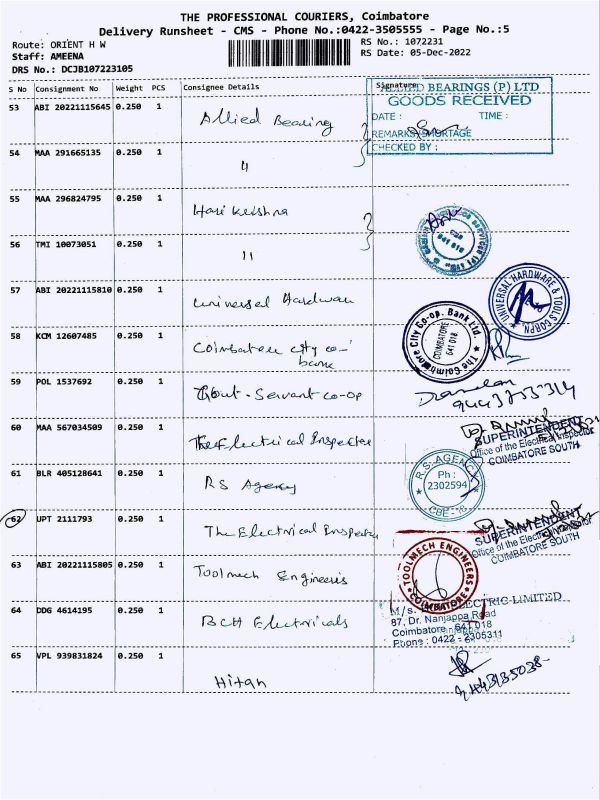 THE PROFESSIONAL COURIERS, Coimbatore
Delivery Runsheet - CMS - Phone No.:0422-3505555 - Page No.:5
Route: ORIENT H W
RS No.: 1072231
Staff: AMEENA
RS Date: 05-Dec-2022
DRS No.: DCJB107223105
S No Consignment No Weight PCS Consignee Details Signature
53 ABI 20221115645 0.250 1 Allied Bearing
BEARINGS (P) LTD
GOODS RECEIVED
DATE : TIME :
REMARKS/SHORTAGE
CHECKED BY :
54 MAA 291665135 0.250 1 "
55 MAA 296824795 0.250 1 Hari Krishna
56 TMI 10073051 0.250 1 "
641 018
57 ABI 20221115810 0.250 1 Universal Hardware
UNIVERSAL HARDWARE & TOOLS CORPN
58 KCM 12607485 0.250 1 Coimbatore city co-
bank
The Coimbatore City Co-op. Bank Ltd.
COIMBATORE
641 018
59 POL 1537692 0.250 1 Gout-Servant co-op
60 MAA 567034509 0.250 1 The Electrical Inspector
SUPERINTENDENT
Office of the Electrical Inspector
COIMBATORE SOUTH
61 BLR 405128641 0.250 1 RS Agency
R.S. AGENCY
Ph :
2302594
CBE - 18
62 UPT 2111793 0.250 1 The Electrical Inspector
SUPERINTENDENT
Office of the Electrical Inspector
COIMBATORE SOUTH
63 ABI 20221115805 0.250 1 Toolmech Engineers
TOOLMECH ENGINEERS
COIMBATORE
64 DDG 4614195 0.250 1 BCH Electricals
M/s. ELECTRIC LIMITED
87, Dr. Nanjappa Road
Coimbatore 641 018
Phone : 0422 - 2305311
65 VPL 939831824 0.250 1 Hitan